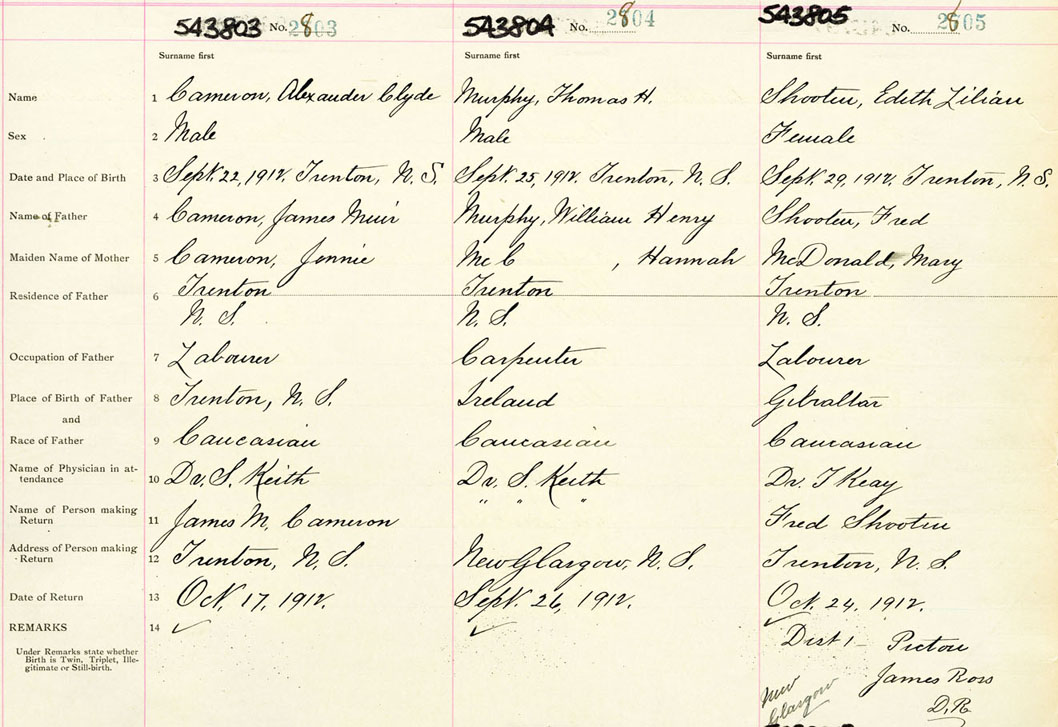 543803 No. 2803 543804 No. 2804 543805 No. 2805
Surname first Surname first Surname first
Name 1 Cameron, Alexander Clyde Murphy, Thomas H. Shooten, Edith Lilian
Sex 2 Male Male Female
Date and Place of Birth 3 Sept. 22, 1912. Trenton, N. S. Sept. 25, 1912. Trenton, N. S. Sept. 29, 1912. Trenton, N. S.
Name of Father 4 Cameron, James Muir Murphy, William Henry Shooten, Fred
Maiden Name of Mother 5 Cameron, Jennie McC , Hannah McDonald, Mary
Residence of Father 6 Trenton Trenton Trenton
N. S. N. S. N. S.
Occupation of Father 7 Labourer Carpenter Labourer
Place of Birth of Father 8 Trenton, N. S. Ireland Gibraltar
and
Race of Father 9 Caucasian Caucasian Caucasian
Name of Physician in at-
tendance 10 Dr. S. Keith Dr. S. Keith Dr. J Keay
Name of Person making
Return 11 James M. Cameron " " " Fred Shooten
Address of Person making
Return 12 Trenton, N. S. New Glasgow, N. S. Trenton, N. S.
Date of Return 13 Oct. 17, 1912. Sept. 26, 1912. Oct. 24, 1912.
REMARKS 14 ✓ ✓ ✓
Under Remarks state whether
Birth is Twin, Triplet, Ille-
gitimate or Still-birth.
Dist 1 - Pictou
James Ross
D. R.
New
Glasgow